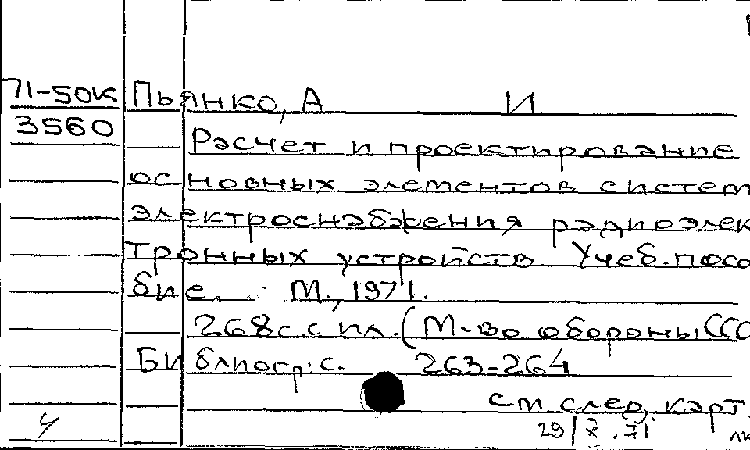 71-50к Пьянко, А И
3560 Расчет и проектирование
основных элементов систем
электроснабжения радиоэлек
тронных устройств. Учеб. посо
бие. М., 1971.
268 с. с ил. (М-во обороны ССС
Библиогр: с. 263-264
см. след. карт.
29/X.71.